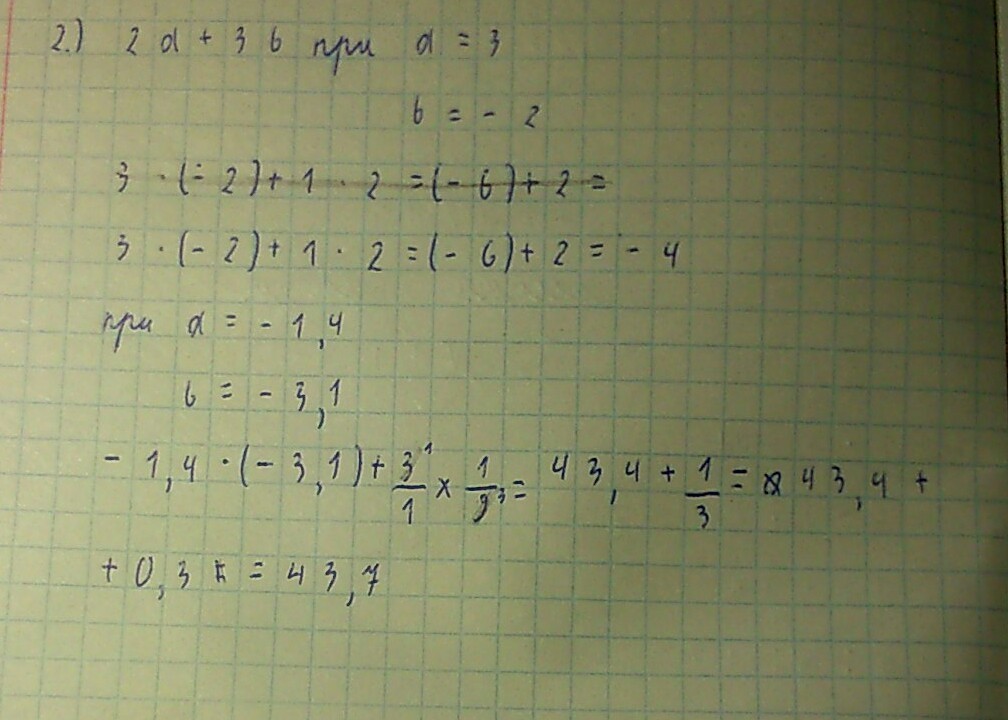 2.) 2a + 3b при a = 3
b = - 2
3 · (- 2) + 1 · 2 = (- 6) + 2 =
3 · (- 2) + 1 · 2 = (- 6) + 2 = - 4
при a = - 1,4
b = - 3,1
- 1,4 · (- 3,1) + 3¹/1 × 1/9³ = 43,4 + 1/3 = 43,4 +
+ 0,3 = 43,7